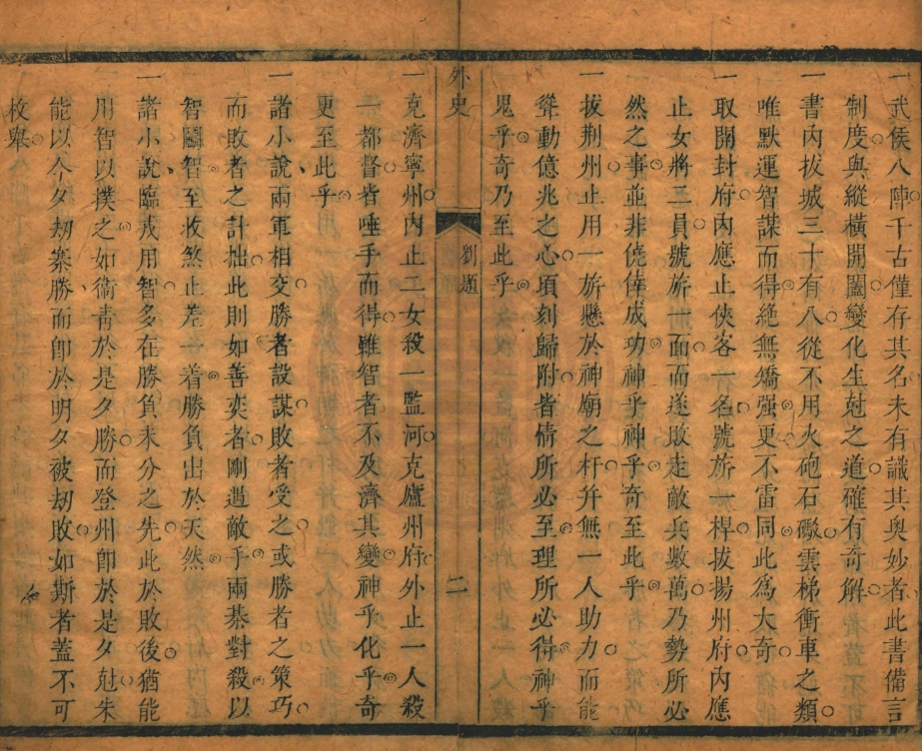 一武侯八陣千古僅存其名未有識其奥妙者此書備言
制度與縱橫開闔變化生尅之道確有奇解
一書內拔城三十有八從不用火砲石礮雲梯衝車之類
唯默運智謀而得絶無矯强更不雷同此爲大奇
一取開封府內應止俠客一名號旂一桿拔揚州府內應
止女將三員號旂一面而遂敗走敵兵數萬乃勢所必
然之事並非僥倖成功神乎神乎奇至此乎
一拔荆州止用一旂懸於神廟之杆并無一人助力而能
聳動億兆之心頃刻歸附皆情所必至理所必得神乎
鬼乎奇乃至此乎
外史
劉題
二
一克濟寧州內止二女殺一監河克廬州府外止一人殺
一都督皆唾手而得雖智者不及濟其變神乎化乎奇
更至此乎
一諸小說兩軍相交勝者設謀敗者受之或勝者之策巧
而敗者之計拙此則如善奕者剛遇敵手兩棊對殺以
智鬭智至收煞止差一着勝負出於天然
一諸小說臨戎用智多在勝負未分之先此於敗後猶能
用智以撲之如衞青於是夕勝而登州卽於是夕尅朱
能以今夕刼寨勝而卽於明夕被刼敗如斯者蓋不可
枚舉